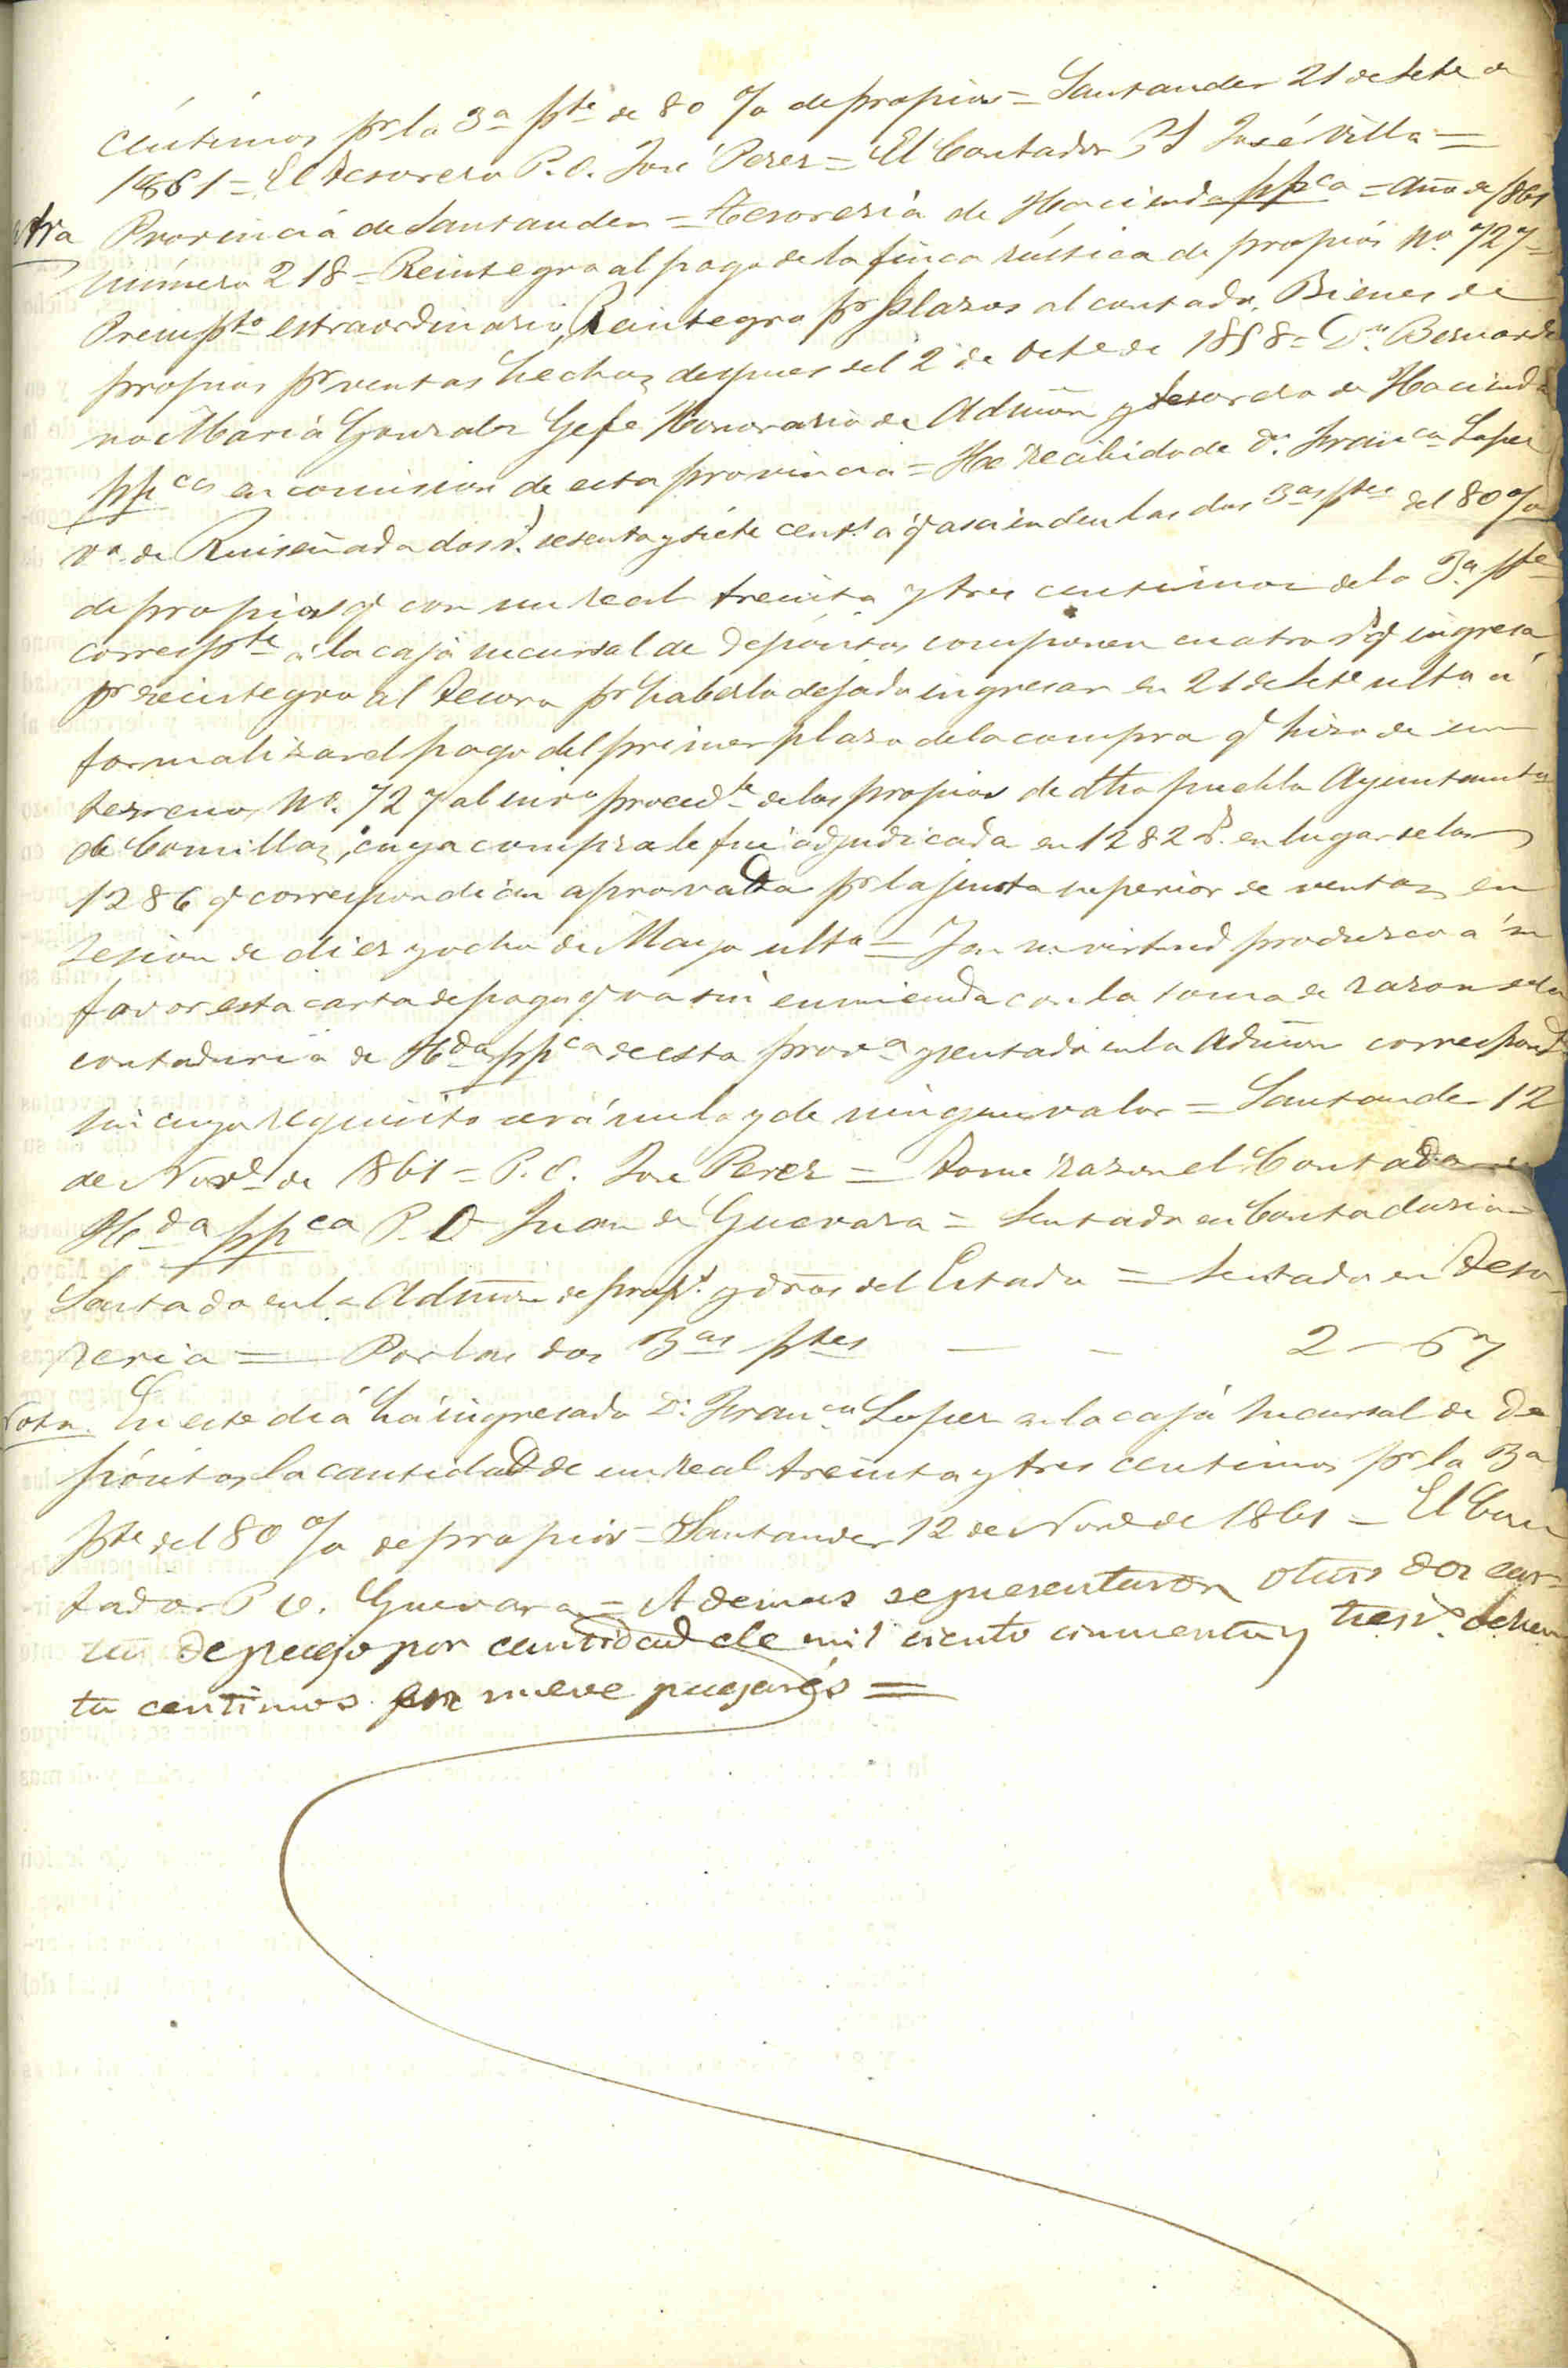 centimos pr la 3a pte de 80 % de propios = Santander 21 de Sete de
1861 = El Tesorero P.O. José Perez = El Contador P.I José Villa =
otra Provincia de Santander = Tesoreria de Hacienda ppca = año de 1861
número 218 = Reintegro al pago de la finca rústica de propios No. 727 =
Presupto estraordinario, Reintegro pr plazos al contado. Bienes de
propios pr ventas hechas despues del 2 de Octe de 1858 = Dn. Bernardi
no Maria Gonzalez Gefe Honorario de Admon y tesorero de Hacienda
ppca en comision de esta provincia = He recibido de Dn. Franco Lopez
vo. de Ruiseñada dos r. sesenta y siete cents. á q ascienden las dos 3as ptes del 80 %
de propios q con un real treinta y tres centimos de la 3a pte
correspte á la caja sucursal de Depósitos componen cuatro rs q ingresa
pr reintegro al Tesoro pr haberlo dejado ingresar en 21 de Sete ulto a
formalizar el pago del primer plazo de la compra q hizo de un
terreno, No. 727 al invo procedte de los propios de dho pueblo Ayuntamto
de Comillas, cuya compra le fue adjudicada en 1282 r. en lugar de los
1286 q correspondian aprovada pr la junta superior de ventas en
sesion de diez y ocho de Mayo ulto = Y en su virtud produzco a su
favor esta carta de pago q va sin enmienda con la toma de razon de la
contaduria de Hda ppca de esta prova y sentada en la Admon correspond
sin cuyo requisito será nula y de ningun valor = Santander 12
de Nove de 1861 = P.O. José Perez = Tome razon el Contador de
Hda ppca P.O Juan de Guevara = Sentado en Contaduria =
Sentado en la Admon de props. y dros del Estado = Sentado en Teso
reria = Por las dos 3as ptes — - 2 - 67
Nota. En este dia há ingresado Dn. Franco Lopez en la caja sucursal de De
pósitos la cantidad de un real treinta y tres centimos pr la 3a
pte del 80 % de propios = Santander 12 de Nove de 1861 = El Con
tador P O. Guevara = Ademas se presentaron otras dos car
tas de pago por cantidad de mil ciento cinnuenta y tres rs. seten
ta centimos en nueve pagarés =